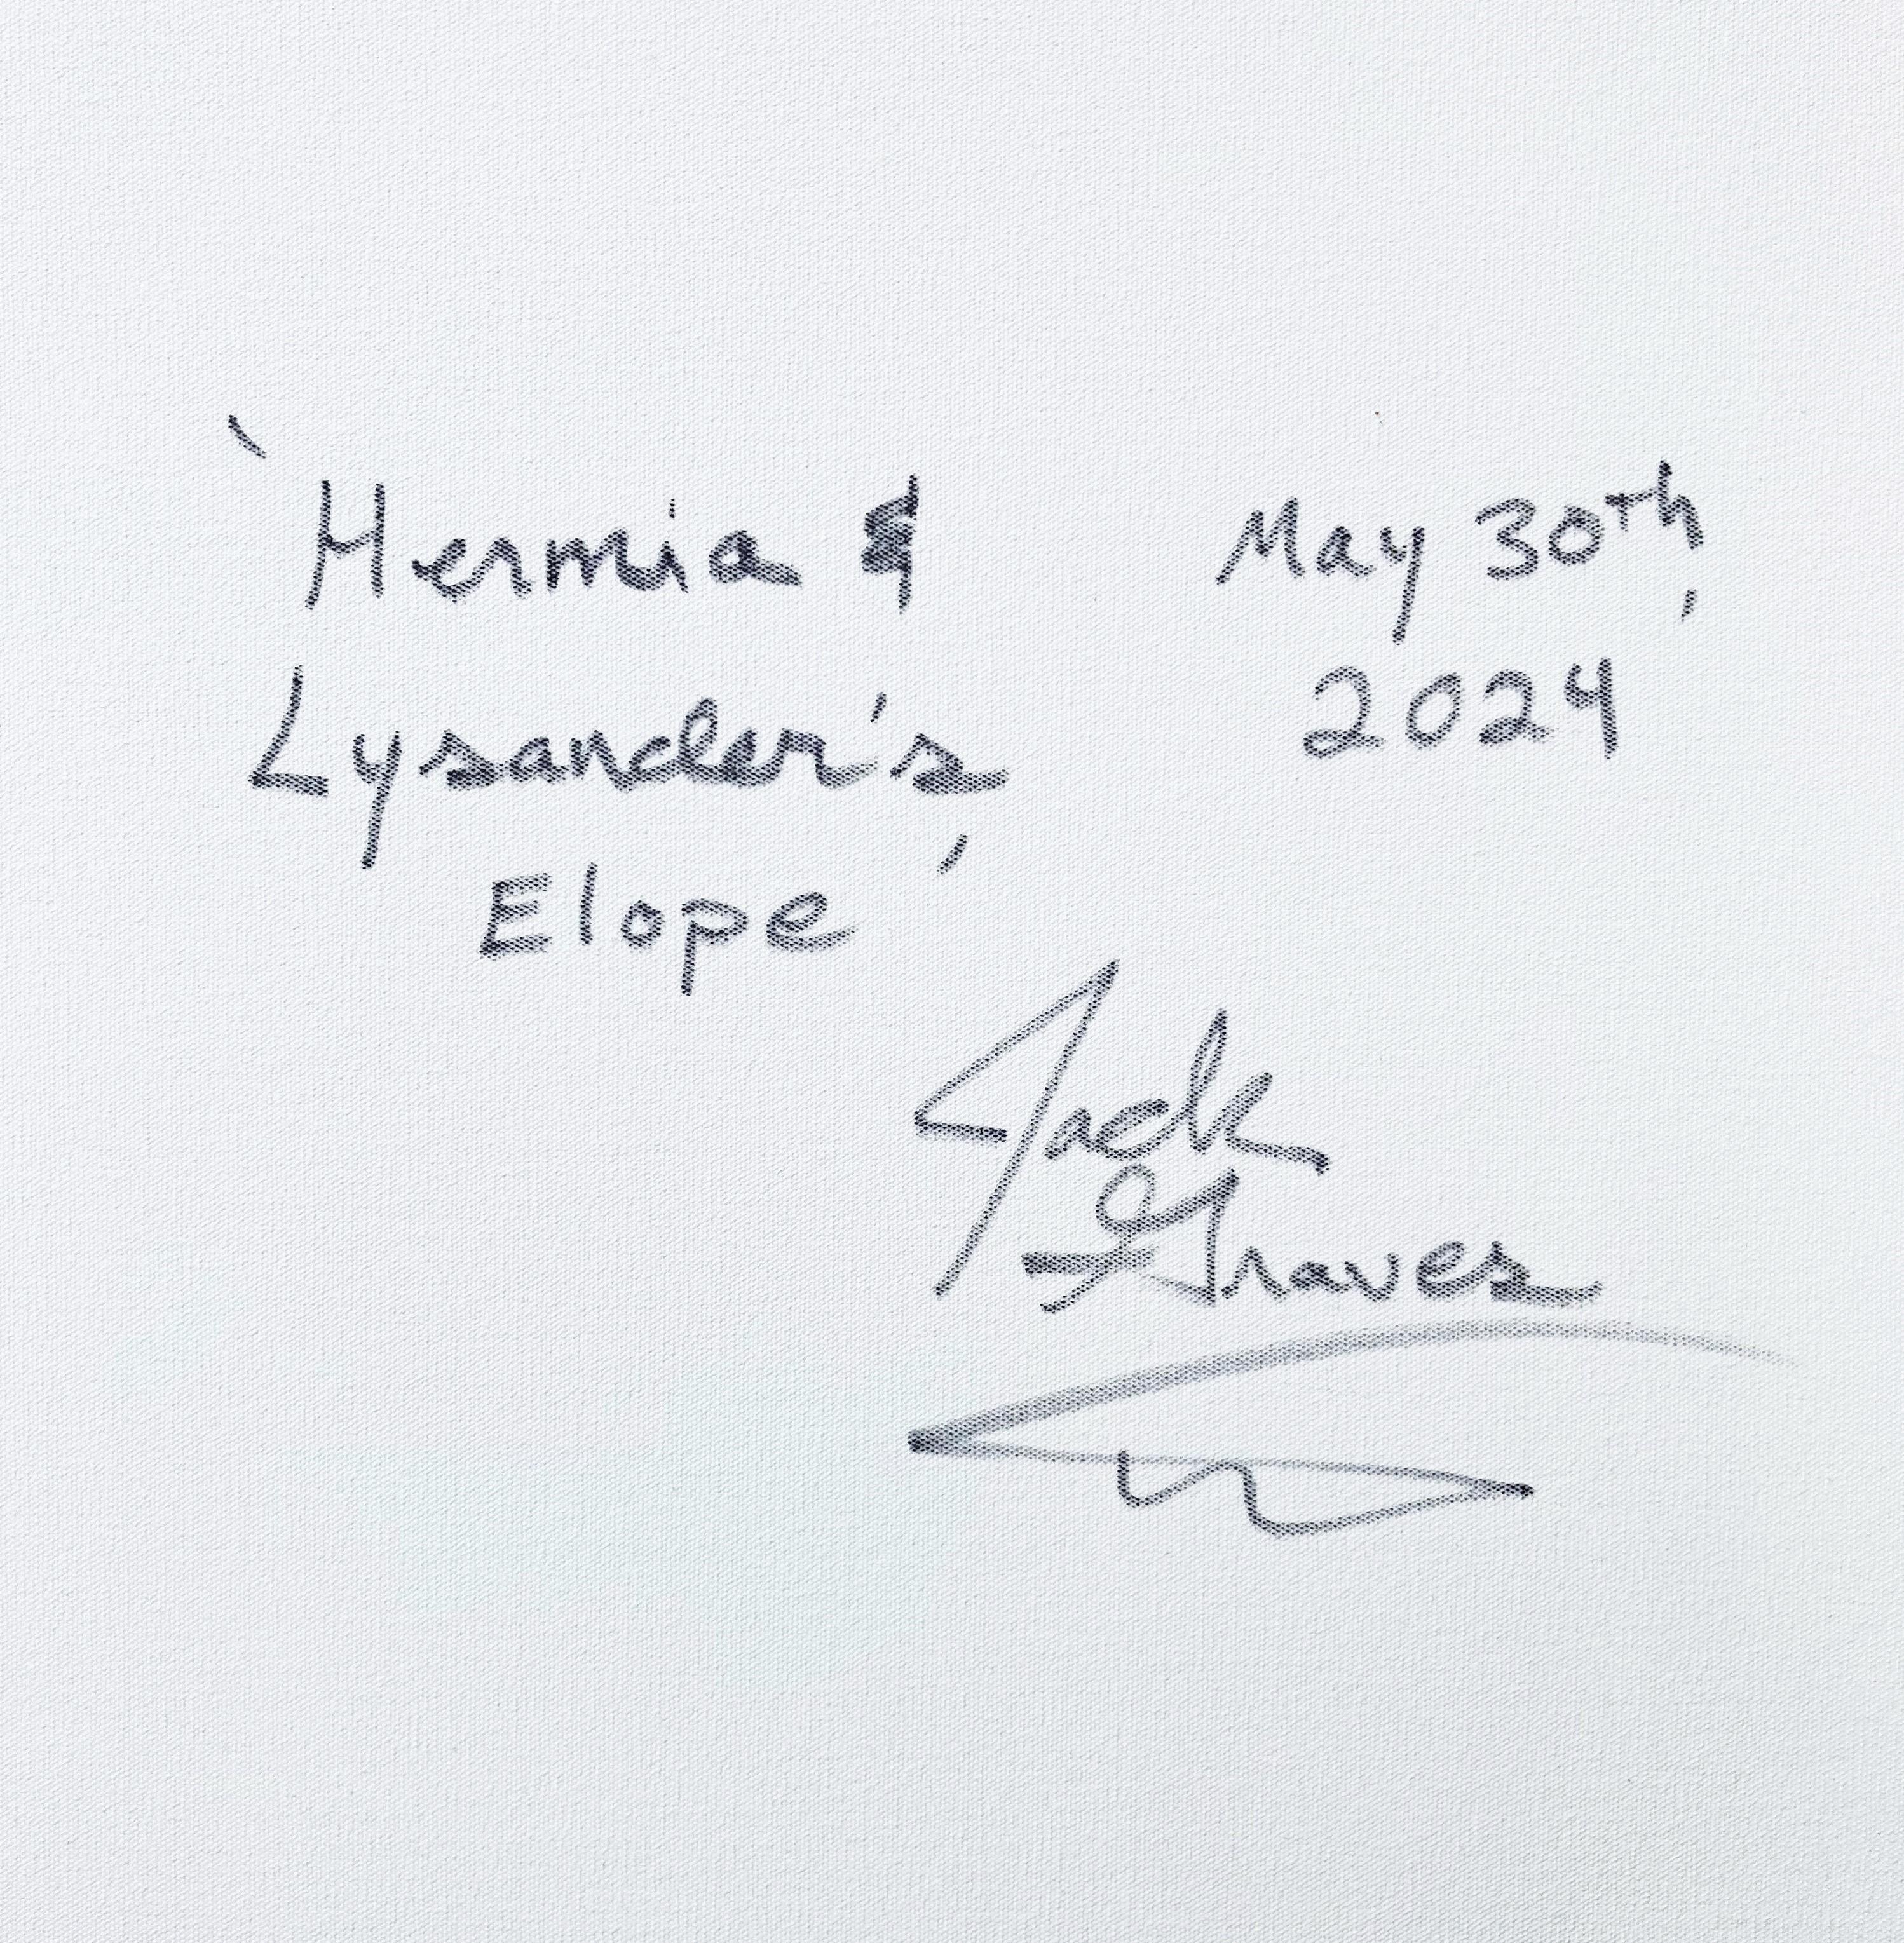 `Hermia &
Lysander's
Elope'
May 30th,
2024
Jack
Graves